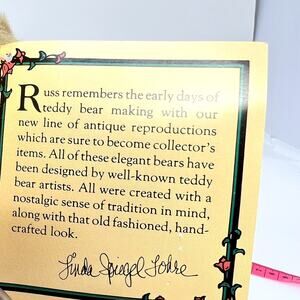 Russ remembers the early days of
teddy bear making with our
new line of antique reproductions
which are sure to become collector's
items. All of these elegant bears have
been designed by well-known teddy
bear artists. All were created with a
nostalgic sense of tradition in mind,
along with that old fashioned, hand-
crafted look.
Linda Spiegel Lohre